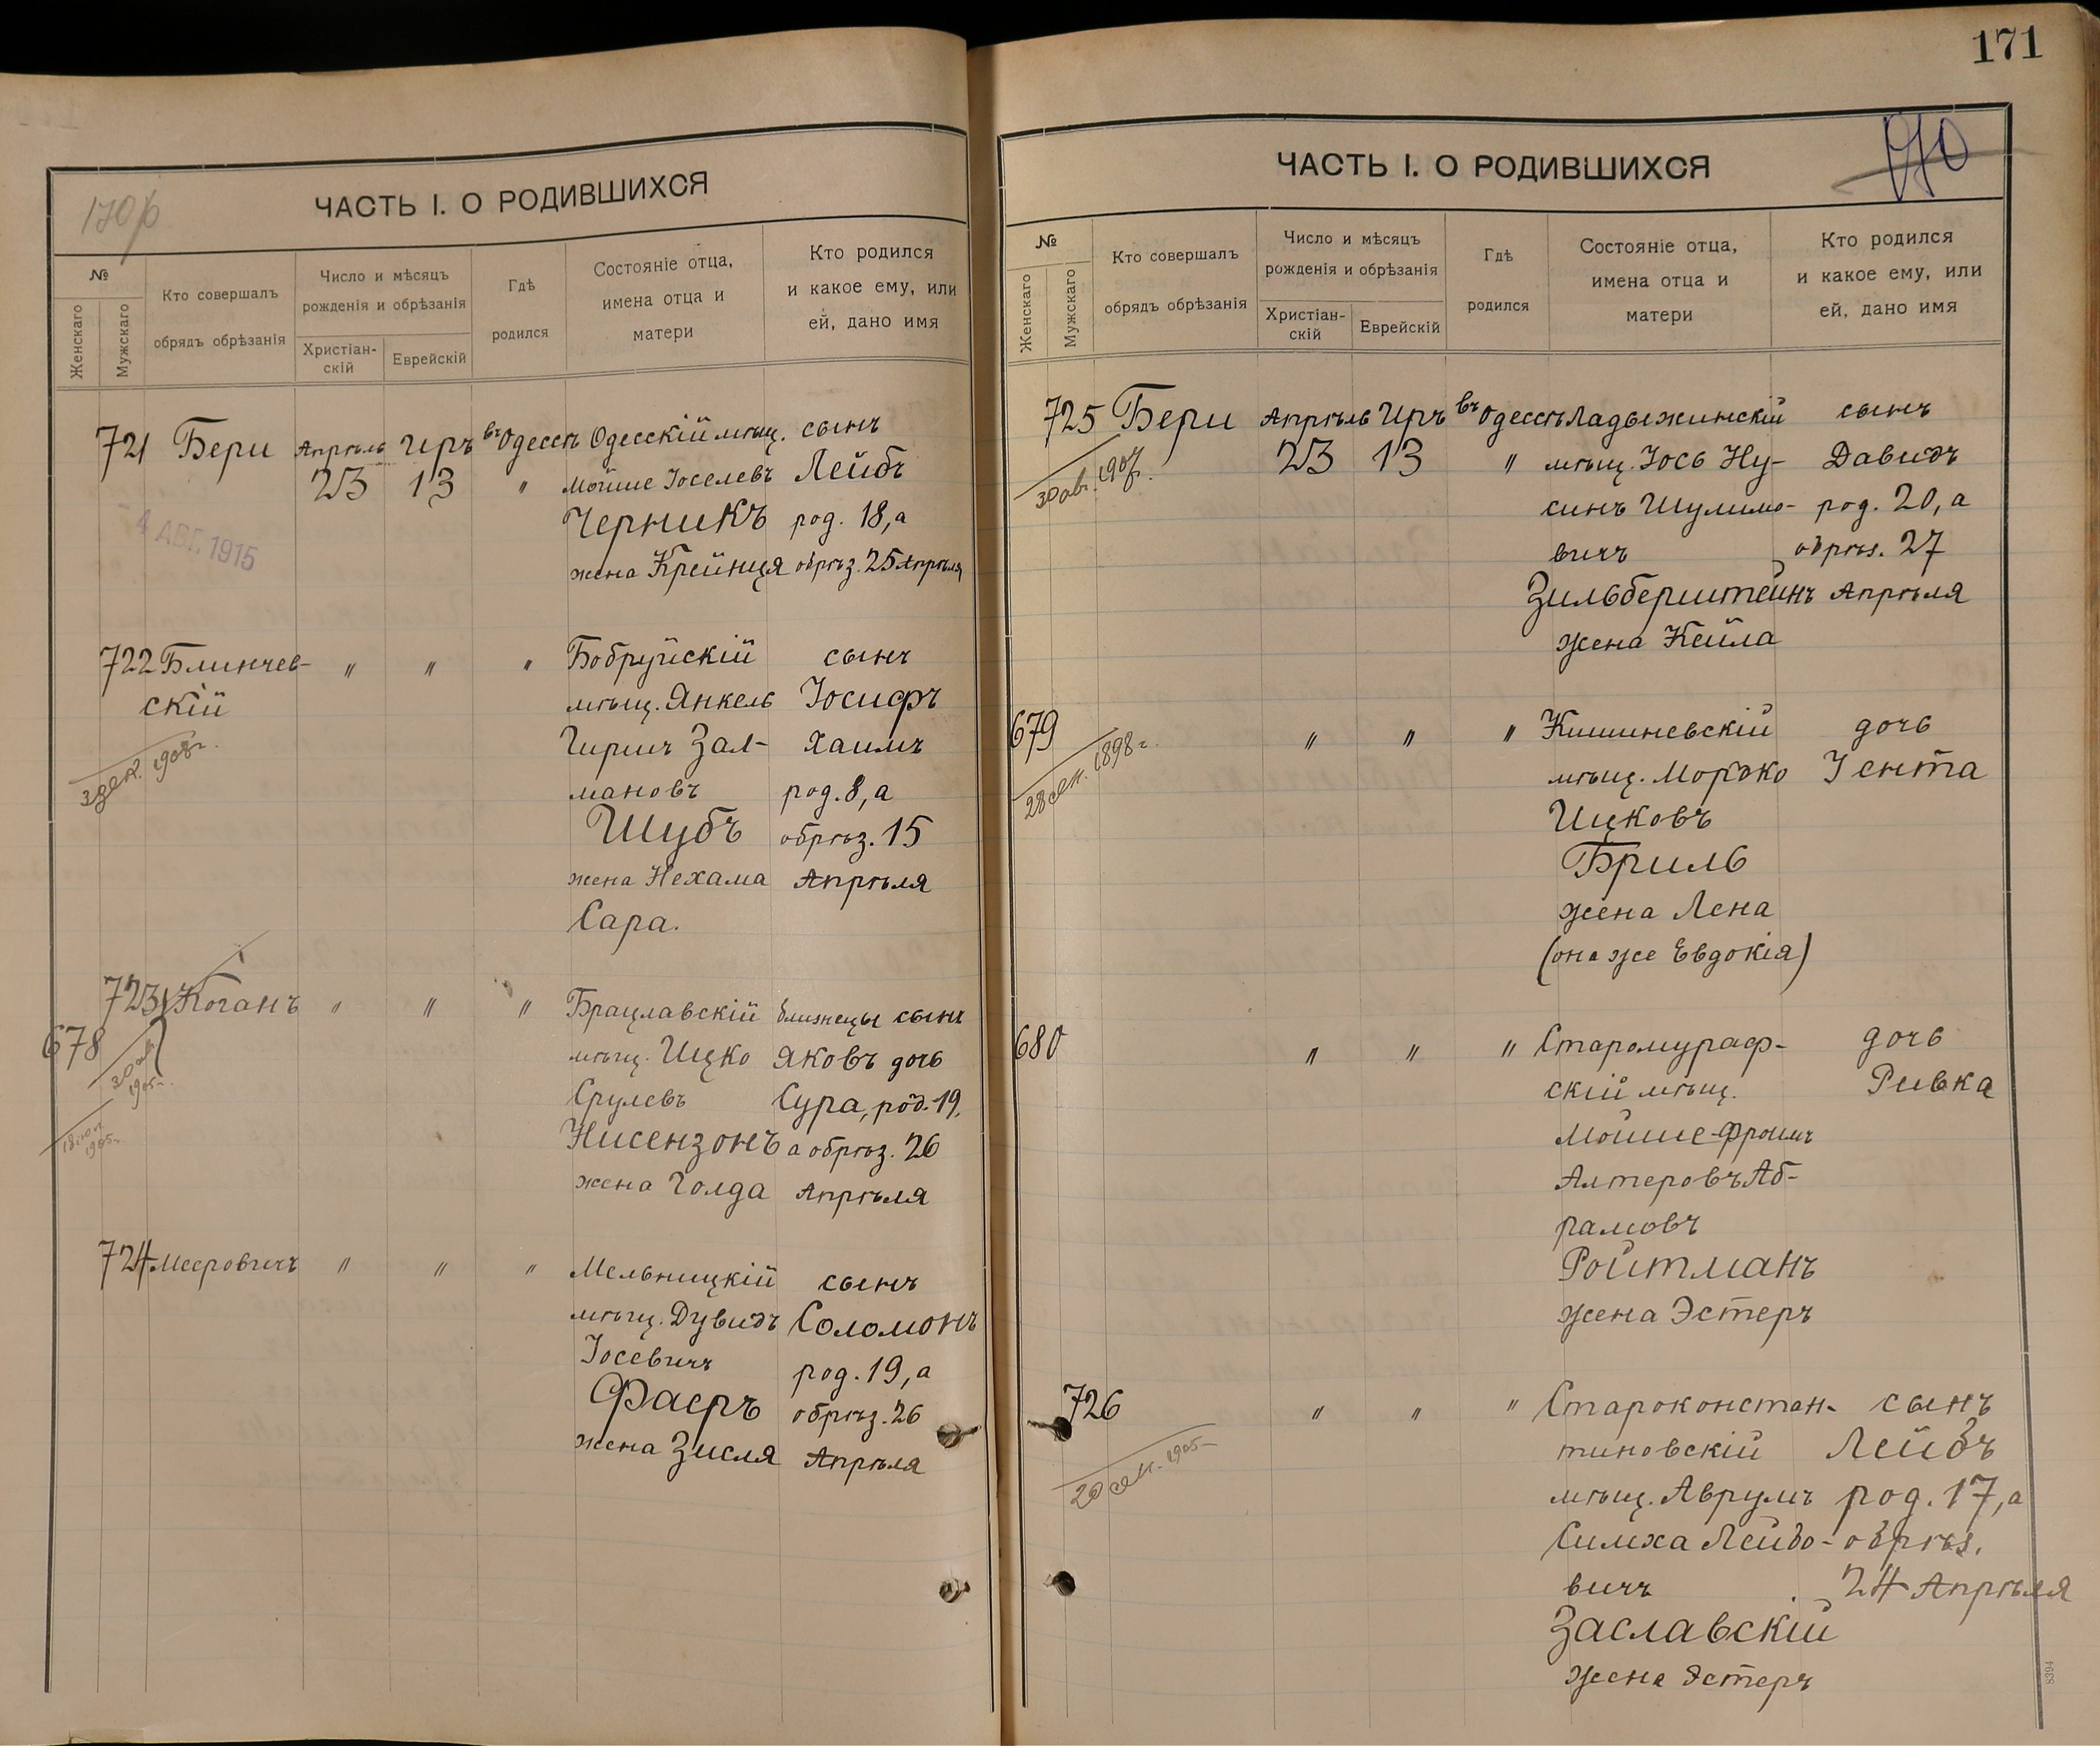 171
170
170 р
ЧАСТЬ I. О РОДИВШИХСЯ
№
Женскаго
Мужскаго
Кто совершалъ
обрядъ обрѣзанія
Число и мѣсяцъ
рожденія и обрѣзанія
Христіан-
скій
Еврейскій
Гдѣ
родился
Состояніе отца,
имена отца и
матери
Кто родился
и какое ему, или
ей, дано имя
721 Бери Апрѣль Иръ въ Одессѣ Одесскій мѣщ. сынъ
23 13 " Мойше Іоселевъ Лейбъ
Черникъ род. 18, а
жена Крейнця обрѣз. 25 Апрѣля
4 АВГ. 1915
722 Блинчев- " " " Бобруйскій сынъ
скій мѣщ. Янкель Іосифъ
Гиршъ Зал- Хаимъ
3 дек. 1908 г. мановъ род. 8, а
Шубъ обрѣз. 15
жена Нехама Апрѣля
Сара.
723 Коганъ " " " Брацлавскій близнецы сынъ
678 мѣщ. Ицко Яковъ дочь
30 авг. 1905 г. Срулевъ Сура, род. 19,
18 1905 г. Нисензонъ а обрѣз. 26
жена Голда Апрѣля
724 Мееровичъ " " " Мельницкій сынъ
мѣщ. Дувидъ Соломонъ
Іосевичъ род. 19, а
Фаеръ обрѣз. 26
жена Зисля Апрѣля
ЧАСТЬ I. О РОДИВШИХСЯ
№
Женскаго
Мужскаго
Кто совершалъ
обрядъ обрѣзанія
Число и мѣсяцъ
рожденія и обрѣзанія
Христіан-
скій
Еврейскій
Гдѣ
родился
Состояніе отца,
имена отца и
матери
Кто родился
и какое ему, или
ей, дано имя
725 Бери Апрѣль Иръ въ Одессѣ Ладыжинскій сынъ
30 авг. 1907 г. 23 13 " мѣщ. Іось Ну- Давидъ
синъ Шулимо- род. 20, а
вичъ обрѣз. 27
Зильберштейнъ Апрѣля
жена Кейла
679 " " " Кишиневскій дочь
28 сен. 1898 г. мѣщ. Мордко Іента
Ицковъ
Бриль
жена Лена
(она же Евдокія)
680 " " " Старомураф- дочь
скій мѣщ. Ривка
Мойше-Фроимъ
Алтеровъ Аб-
рамовъ
Ройтманъ
жена Эстеръ
726 " " " Староконстан- сынъ
тиновскій Лейбъ
20 сен. 1905 мѣщ. Аврумъ род. 17, а
Симха Лейбо- обрѣз.
вичъ 24 Апрѣля
Заславскій
жена Эстеръ
8394